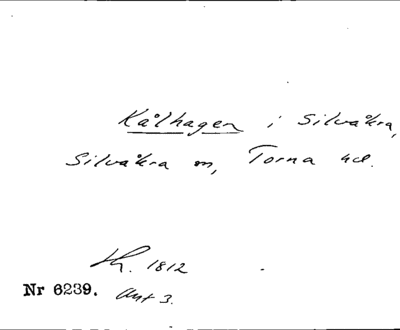 Kålhagen i Silvåkra,
Silvåkra sn, Torna hd.
Lk. 1812
Nr 6239. Akt 3.